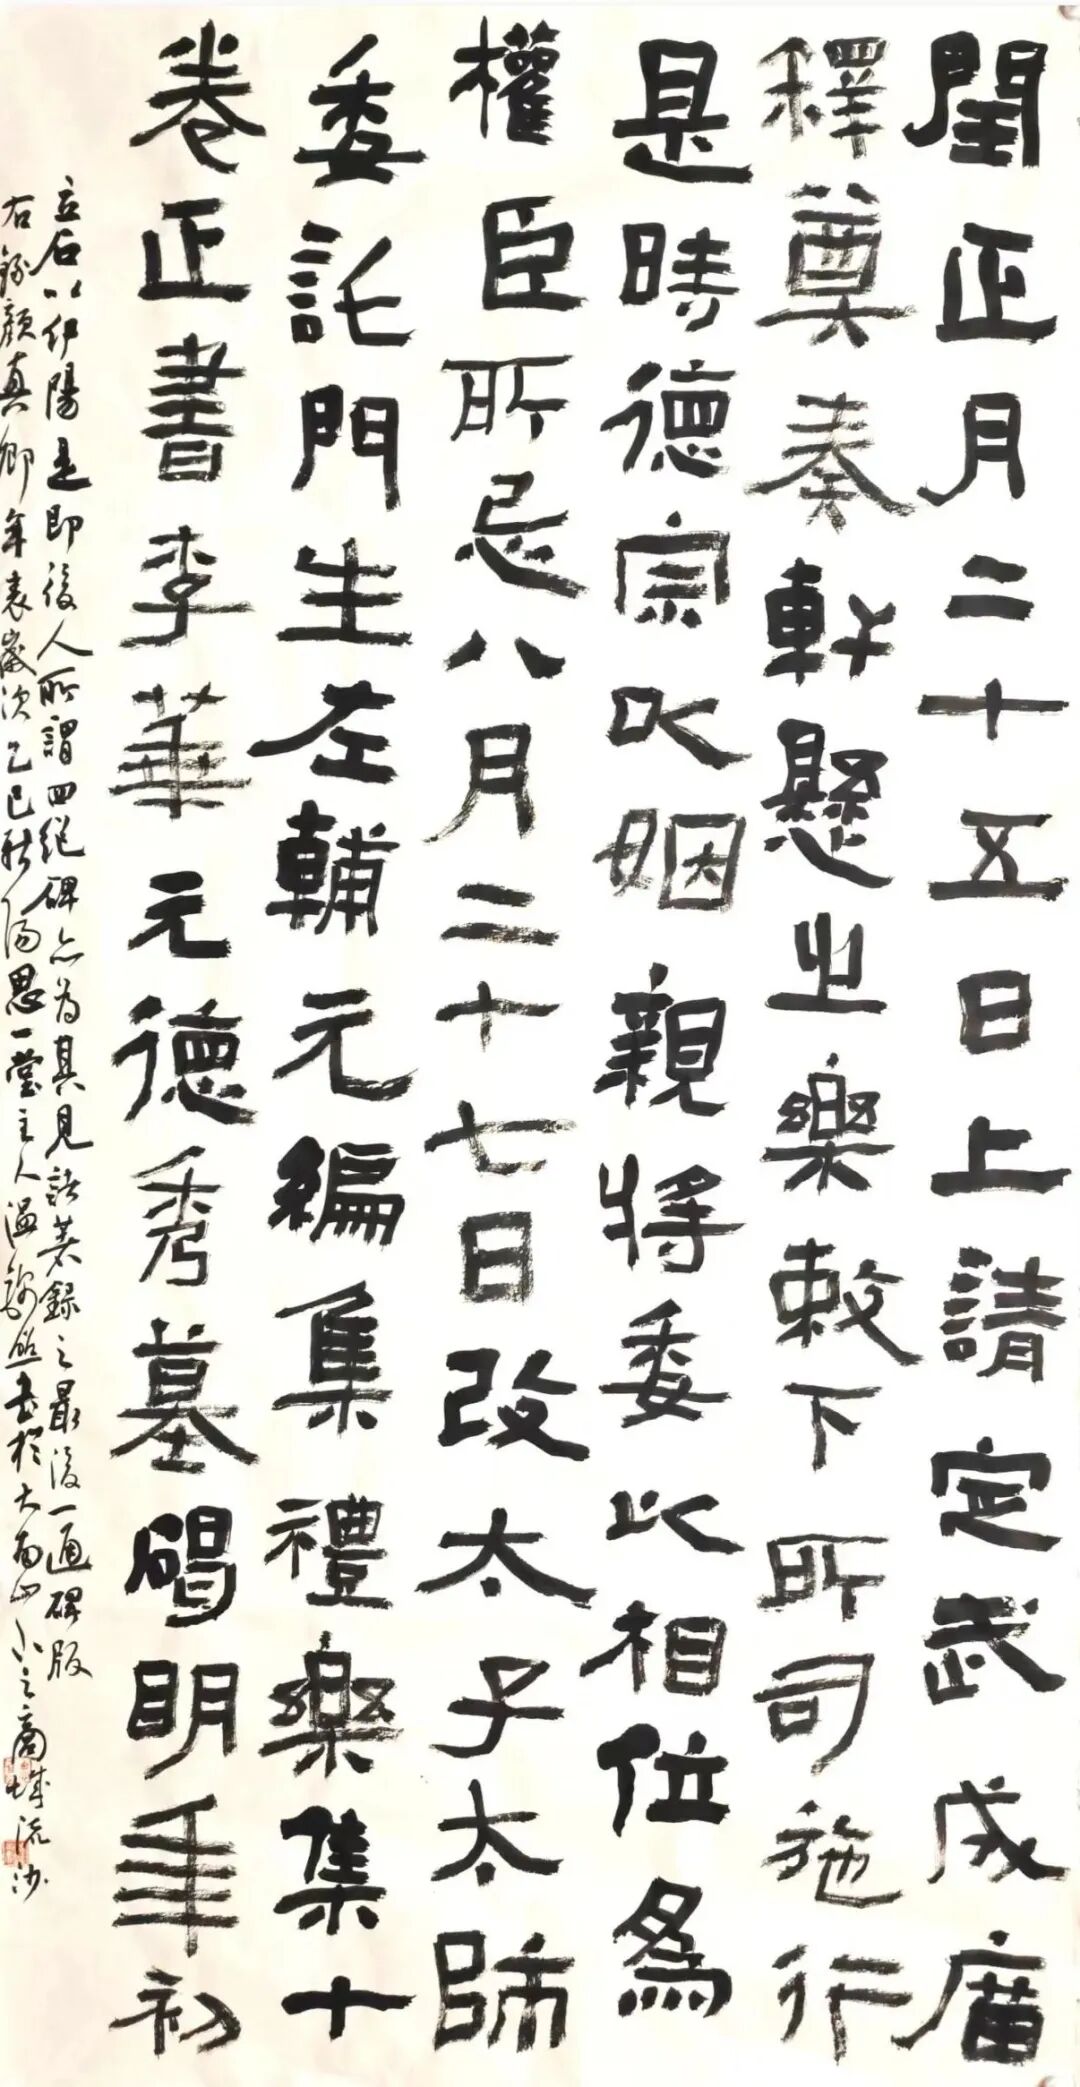 閏正月二十五日上請定武成廟
釋奠奏軒懸之樂敕下所司施行
是時德宗以姻親將委以相位為
權臣所忌八月二十七日改太子太師
委託門生左輔元編集禮樂集十
卷正書李華元德秀墓碣明年初
立石以伊陽是即後人所謂四絕碑亦為其見諸著錄之最後一通碑版
右錄顏真卿年表歲次乙巳秋陽思一堂主人溫 書於大南山下之商城流沙